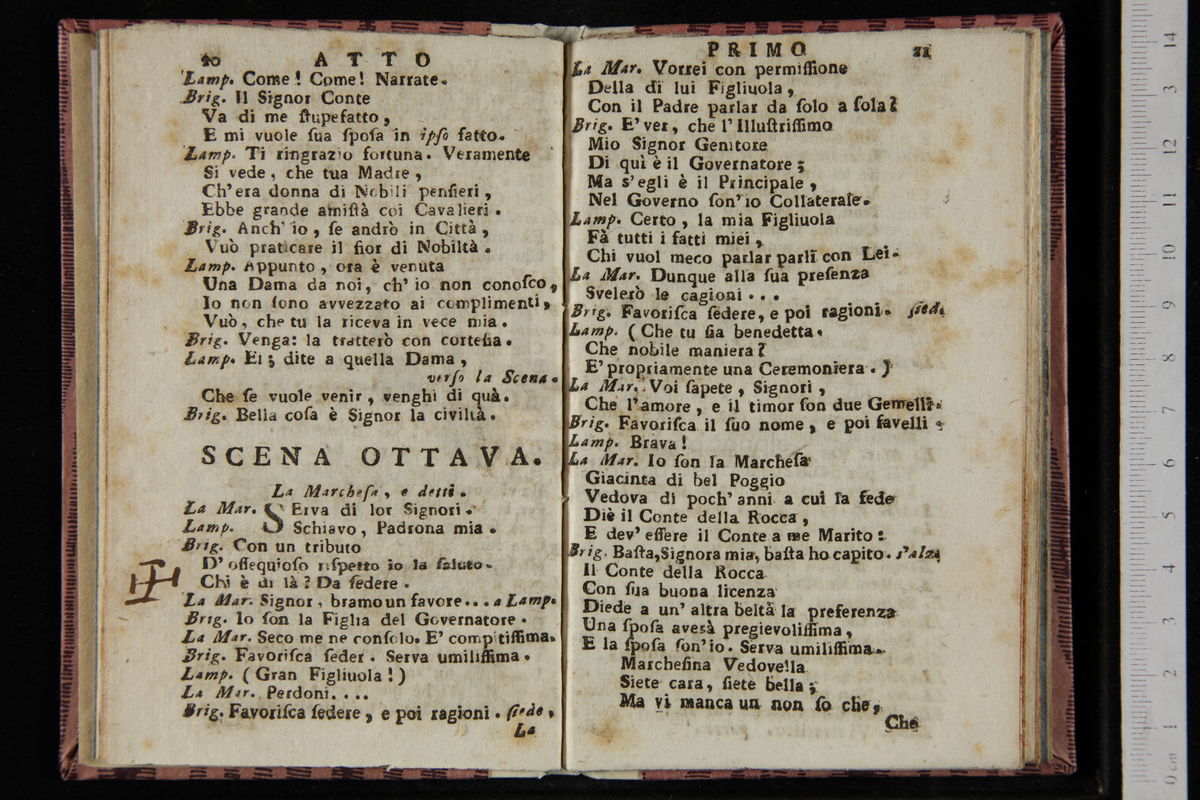 20 ATTO
Lamp. Come! Come! Narrate.
Brig. Il Signor Conte
Va di me ſtupefatto,
E mi vuole ſua ſpoſa in ipſo fatto.
Lamp. Ti ringrazio fortuna. Veramente
Si vede, che tua Madre,
Ch'era donna di Nobili penſieri,
Ebbe grande amiſtà coi Cavalieri.
Brig. Anch' io, ſe andrò in Città,
Vuò praticare il fior di Nobiltà.
Lamp. Appunto, ora è venuta
Una Dama da noi, ch' io non conoſco,
Io non ſono avvezzato ai complimenti,
Vuò, che tu la riceva in vece mia.
Brig. Venga: la tratterò con corteſia.
Lamp. Ei; dite a quella Dama,
verſo la Scena.
Che ſe vuole venir, venghi di quà.
Brig. Bella coſa è Signor la civiltà.
SCENA OTTAVA.
La Marcheſa, e detti.
La Mar. SErva di lor Signori.
Lamp. Schiavo, Padrona mia.
Brig. Con un tributo
D' oſſequioſo riſpetto io la ſaluto.
Chi è di là? Da ſedere.
La Mar. Signor, bramo un favore... a Lamp.
Brig. Io ſon la Figlia del Governatore.
La Mar. Seco me ne conſolo. E' compitiſſima.
Brig. Favoriſca ſeder. Serva umiliſſima.
Lamp. (Gran Figliuola!)
La Mar. Perdoni....
Brig. Favoriſca ſedere, e poi ragioni. ſiede,
La
PRIMO 21
La Mar. Vorrei con permiſſione
Della di lui Figliuola,
Con il Padre parlar da ſolo a ſola?
Brig. E' ver, che l' Illuſtriſſimo
Mio Signor Genitore
Di quì è il Governatore;
Ma s'egli è il Principale,
Nel Governo ſon'io Collaterale.
Lamp. Certo, la mia Figliuola
Fà tutti i fatti miei,
Chi vuol meco parlar parli con Lei.
La Mar. Dunque alla ſua preſenza
Svelerò le cagioni...
Brig. Favoriſca ſedere, e poi ragioni. ſied.
Lamp. (Che tu ſia benedetta.
Che nobile maniera?
E' propriamente una Ceremoniera.)
La Mar. Voi ſapete, Signori,
Che l'amore, e il timor ſon due Gemelli.
Brig. Favoriſca il ſuo nome, e poi favelli.
Lamp. Brava!
La Mar. Io ſon la Marcheſa
Giacinta di bel Poggio
Vedova di poch' anni a cui la fede
Diè il Conte della Rocca,
E dev' eſſere il Conte a me Marito:
Brig. Baſta, Signora mia, baſta ho capito. s'alza
Il Conte della Rocca
Con ſua buona licenza
Diede a un' altra beltà la preferenza
Una ſpoſa averà pregievoliſſima,
E la ſpoſa ſon'io. Serva umiliſſima.
Marcheſina Vedovella
Siete cara, ſiete bella;
Ma vi manca un non ſo che,
Che